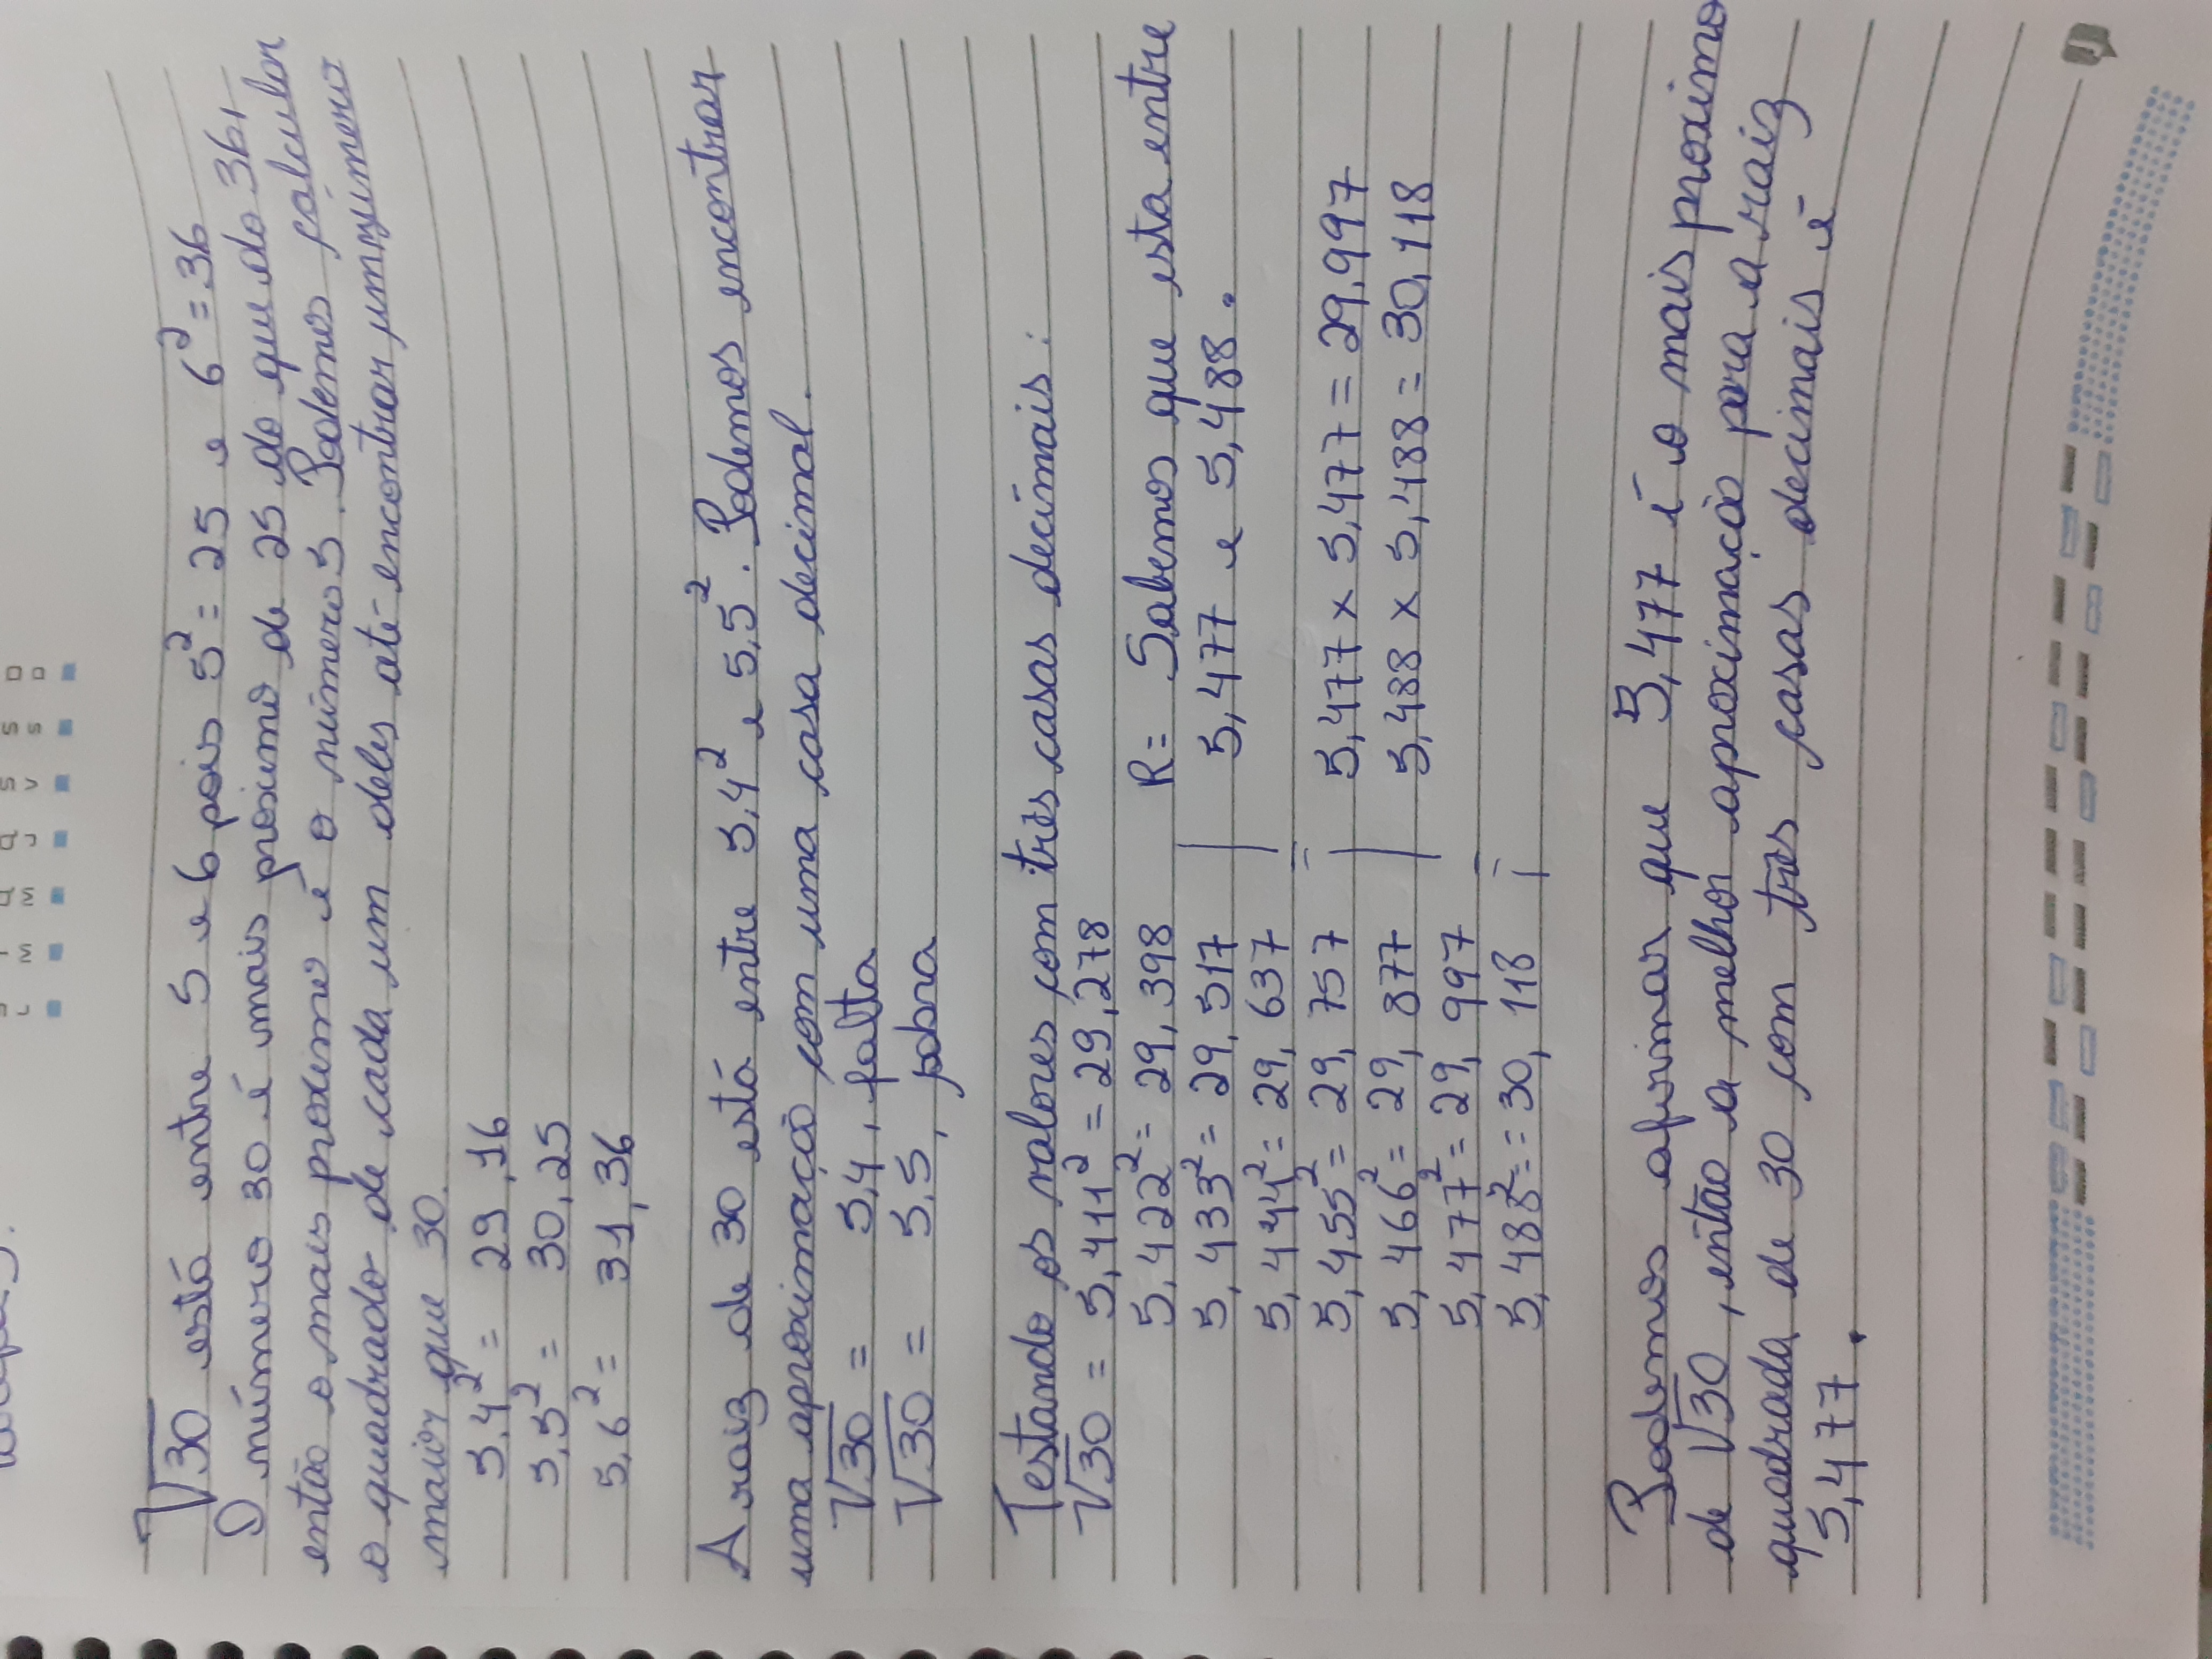 √30 está entre 5 e 6 pois 5² = 25 e 6² = 36
O número 30 é mais proximo de 25 do que do 36,
então o mais proximo é o número 5. Podemos calcular
o quadrado de cada um deles até encontrar um número
maior que 30.
5,4² = 29,16
5,5² = 30,25
5,6² = 31,36
A raiz de 30 está entre 5,4² e 5,5². Podemos encontrar
uma aproximação com uma casa decimal.
√30 = 5,4, falta
√30 = 5,5, sobra
Testando os valores com três casas decimais:
√30 = 5,411² = 29,278
5,422² = 29,398
5,433² = 29,517
5,444² = 29,637
5,455² = 29,757
5,466² = 29,877
5,477² = 29,997
5,488² = = 30,118
R= Sabemos que esta entre
5,477 e 5,488.
5,477 x 5,477 = 29,997
5,488 x 5,488 = 30,118
Podemos afirmar que 5,477 é o mais proximo
de √30, então a melhor aproximação para a raiz
quadrada de 30 com três casas decimais é
5,477.